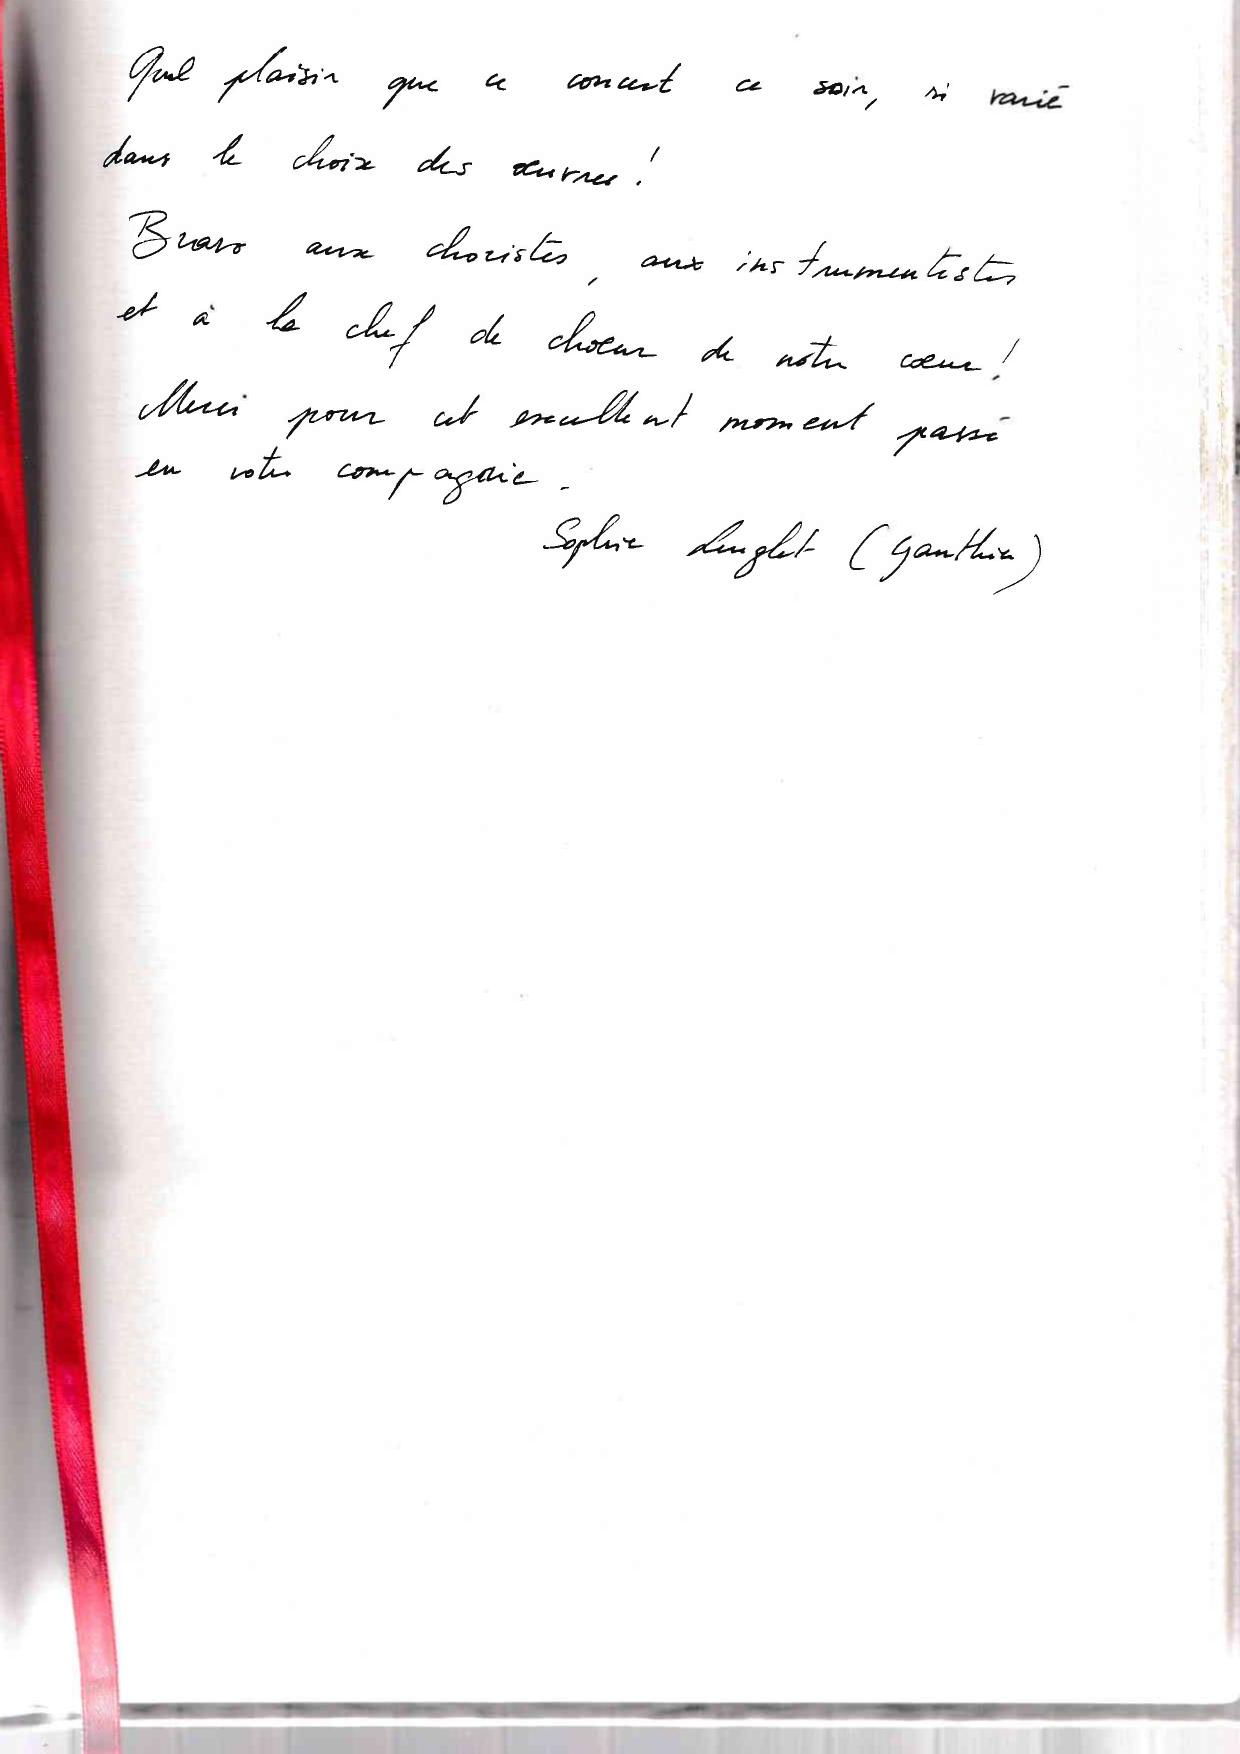 Quel plaisir que ce concert ce soir, si varié
dans le choix des œuvres !
Bravo aux choristes, aux instrumentistes
et à la chef de chœur de notre cœur !
Merci pour cet excellent moment passé
en votre compagnie.
Sophie Lenglet (Gauthier)